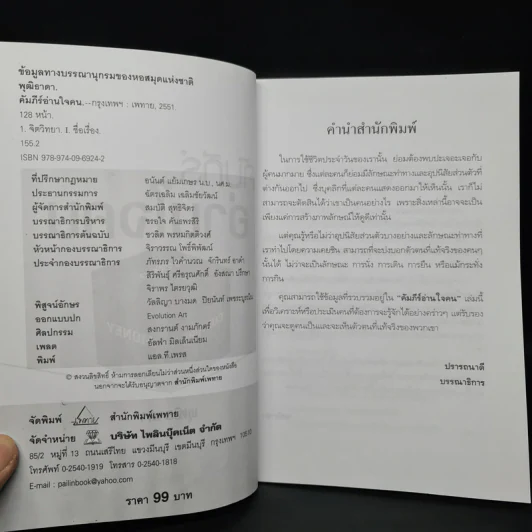 ข้อมูลทางบรรณานุกรมของหอสมุดแห่งชาติ
พุฒิธาดา.
คัมภีร์อ่านใจคน.--กรุงเทพฯ : เพทาย, 2551.
128 หน้า.
1. จิตวิทยา. I. ชื่อเรื่อง.
155.2
ISBN 978-974-09-6924-2
ที่ปรึกษากฎหมาย อนันต์ แย้มเกษร น.บ., นศ.ม.
ประธานกรรมการ ฉัตรเฉลิม เฉลิมชัยวัฒน์
ผู้จัดการสำนักพิมพ์ สมบัติ สุทธิจิตร
บรรณาธิการบริหาร ขรอใจ คันอพรสิริ
บรรณาธิการต้นฉบับ ชวลิต พรหมกิตติวงศ์
หัวหน้ากองบรรณาธิการ จิราวรรณ โพธิ์พิพัฒน์
ประจำกองบรรณาธิการ ภัทรภร ไวคำนวณ จักรินทร์
สิริพันธุ์ ศรีอรุณศักดิ์
จิราพร ไตรยวุฒิ
พิสูจน์อักษร วัลลิญา บางมด ปิยนันท์
ออกแบบปก Evolution Art
ศิลปกรรม สงกรานต์ งามภักตร์
เพลต อัลฟา มิลเล็นเนียม
พิมพ์ แอล.ที.เพรส
© สงวนลิขสิทธิ์ ห้ามการลอกเลียนไม่ว่าส่วนหนึ่งส่วนใดของหนังสือ
นอกจากจะได้รับอนุญาตจาก สำนักพิมพ์เพทาย
จัดพิมพ์ เพทาย สำนักพิมพ์เพทาย
จัดจำหน่าย บริษัท ไพลินบุ๊คเน็ต จำกัด
85/2 หมู่ที่ 13 ถนนเสรีไทย แขวงมีนบุรี เขตมีนบุรี กรุงเทพฯ
โทรศัพท์ 0-2540-1919 โทรสาร 0-2540-1818
E-mail : pailinbook@yahoo.com
ราคา 99 บาท
คำนำสำนักพิมพ์
ในการใช้ชีวิตประจำวันของเรานั้น ย่อมต้องพบปะเจอะเจอกับ
ผู้คนมากมาย ซึ่งแต่ละคนก็ย่อมมีลักษณะท่าทางและอุปนิสัยส่วนตัวที่
ต่างกันออกไป ซึ่งบุคลิกที่แต่ละคนแสดงออกมาให้เห็นนั้น เราก็ไม่
สามารถจะตัดสินได้ว่าเขาเป็นคนอย่างไร เพราะสิ่งเหล่านี้อาจจะเป็น
เพียงแค่การสร้างภาพลักษณ์ให้ดูดีเท่านั้น
แต่คุณรู้หรือไม่ว่าอุปนิสัยส่วนตัวบางอย่างและลักษณะท่าทางที่
เราทำไปโดยความเคยชิน สามารถที่จะบ่งบอกตัวตนที่แท้จริงของคนๆ
นั้นได้ ไม่ว่าจะเป็นลักษณะ การนั่ง การเดิน การยืน หรือแม้กระทั่ง
การกิน
คุณสามารถใช้ข้อมูลที่รวบรวมอยู่ใน "คัมภีร์อ่านใจคน" เล่มนี้
เพื่อวิเคราะห์หรือประเมินคนที่ต้องการจะรู้จักได้อย่างคร่าวๆ แต่รับรอง
ว่าคุณจะดูคนเป็นและจะเห็นตัวตนที่แท้จริงของพวกเขา
ปรารถนาดี
บรรณาธิการ